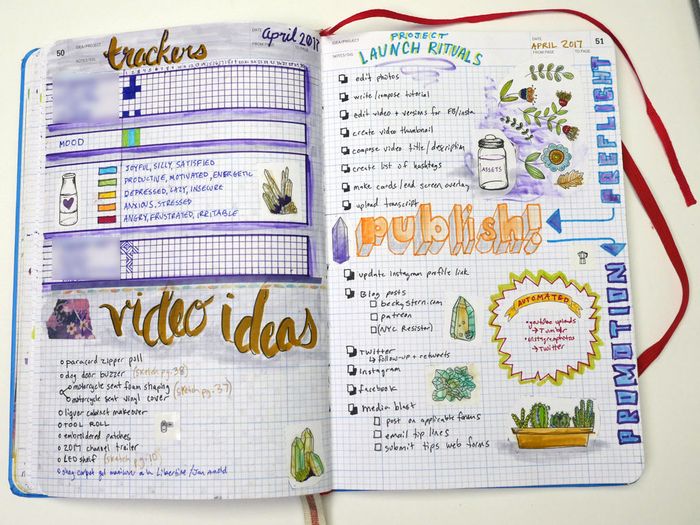 50
IDEA/PROJECT
NOTES/SIG.
trackers
DATE
april 2017
FROM PAGE
TO PAGE
MOOD
JOYFUL, SILLY, SATISFIED
PRODUCTIVE, MOTIVATED, ENERGETIC
DEPRESSED, LAZY, INSECURE
ANXIOUS, STRESSED
ANGRY, FRUSTRATED, IRRITABLE
video ideas
paracord zipper pull
dog door buzzer (sketch pg. 38)
motorcycle seat foam shaping
motorcycle seat vinyl cover (sketch pg. 37)
liquor cabinet makeover
TOOL ROLL
embroidered patches
2017 channel trailer
LED shelf (sketch pg. 10)
IDEA/PROJECT
NOTES/SIG.
PROJECT
LAUNCH RITUALS
DATE
APRIL 2017
FROM PAGE
TO PAGE
51
edit photos
write/compose tutorial
edit video + versions for FB/insta
create video thumbnail
compose video title/description
create list of hashtags
make cards/end screen overlay
upload transcript
ASSETS
PREFLIGHT
publish!
update instagram profile link
Blog posts:
beckystern.com
patreon
(NYC Resistor)
Twitter
↳ follow-up + retweets
Instagram
facebook
media blast
post on applicable forums
email tip lines
submit tips web forms
AUTOMATED
youtube uploads
→ Tumblr
instagram photos
→ Twitter
PROMOTION